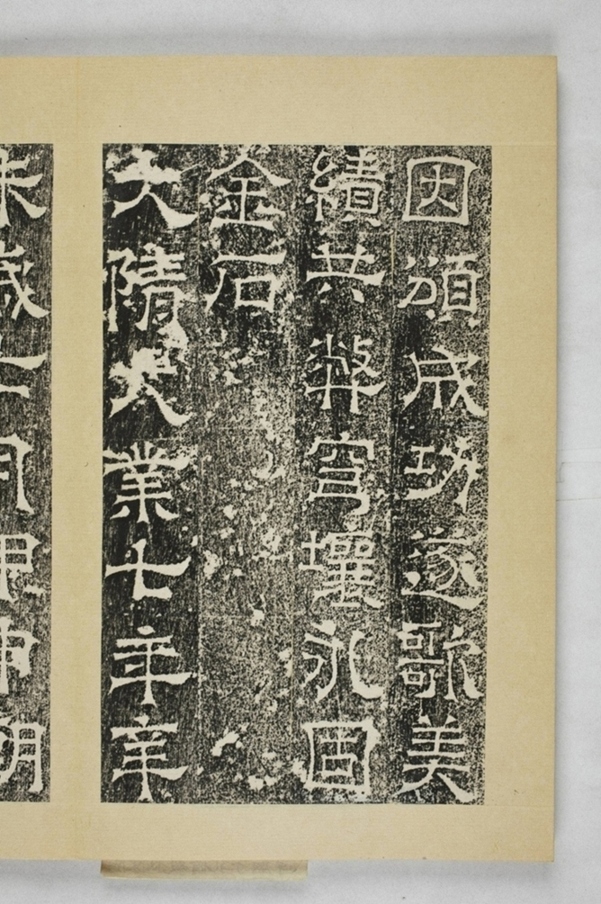 因頌成功遂歌美
績共弊穹壤永固
金石
大隋大業七年辛
未歲七月甲申朔